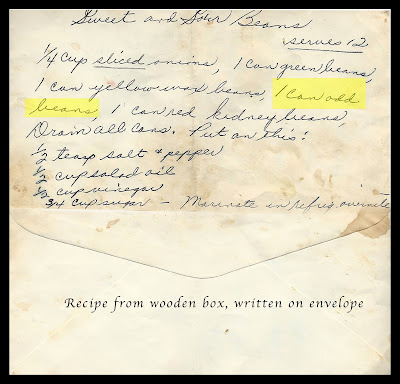 Sweet and Sour Beans
serves 12
1/4 cup sliced onions, 1 can green beans,
1 can yellow wax beans, 1 can odd
beans, 1 can red kidney beans,
Drain all cans. Put on this:
1/2 teasp salt & pepper
1/2 cup salad oil
1/2 cup vinegar
3/4 cup sugar - Marinate in refrig overnite
Recipe from wooden box, written on envelope